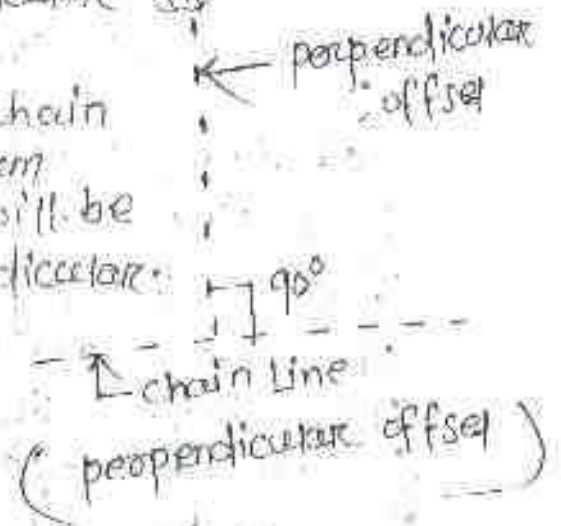 perpendicular
offset
chain
em
will be
dicular.
90°
chain Line
( perpendicular offset )